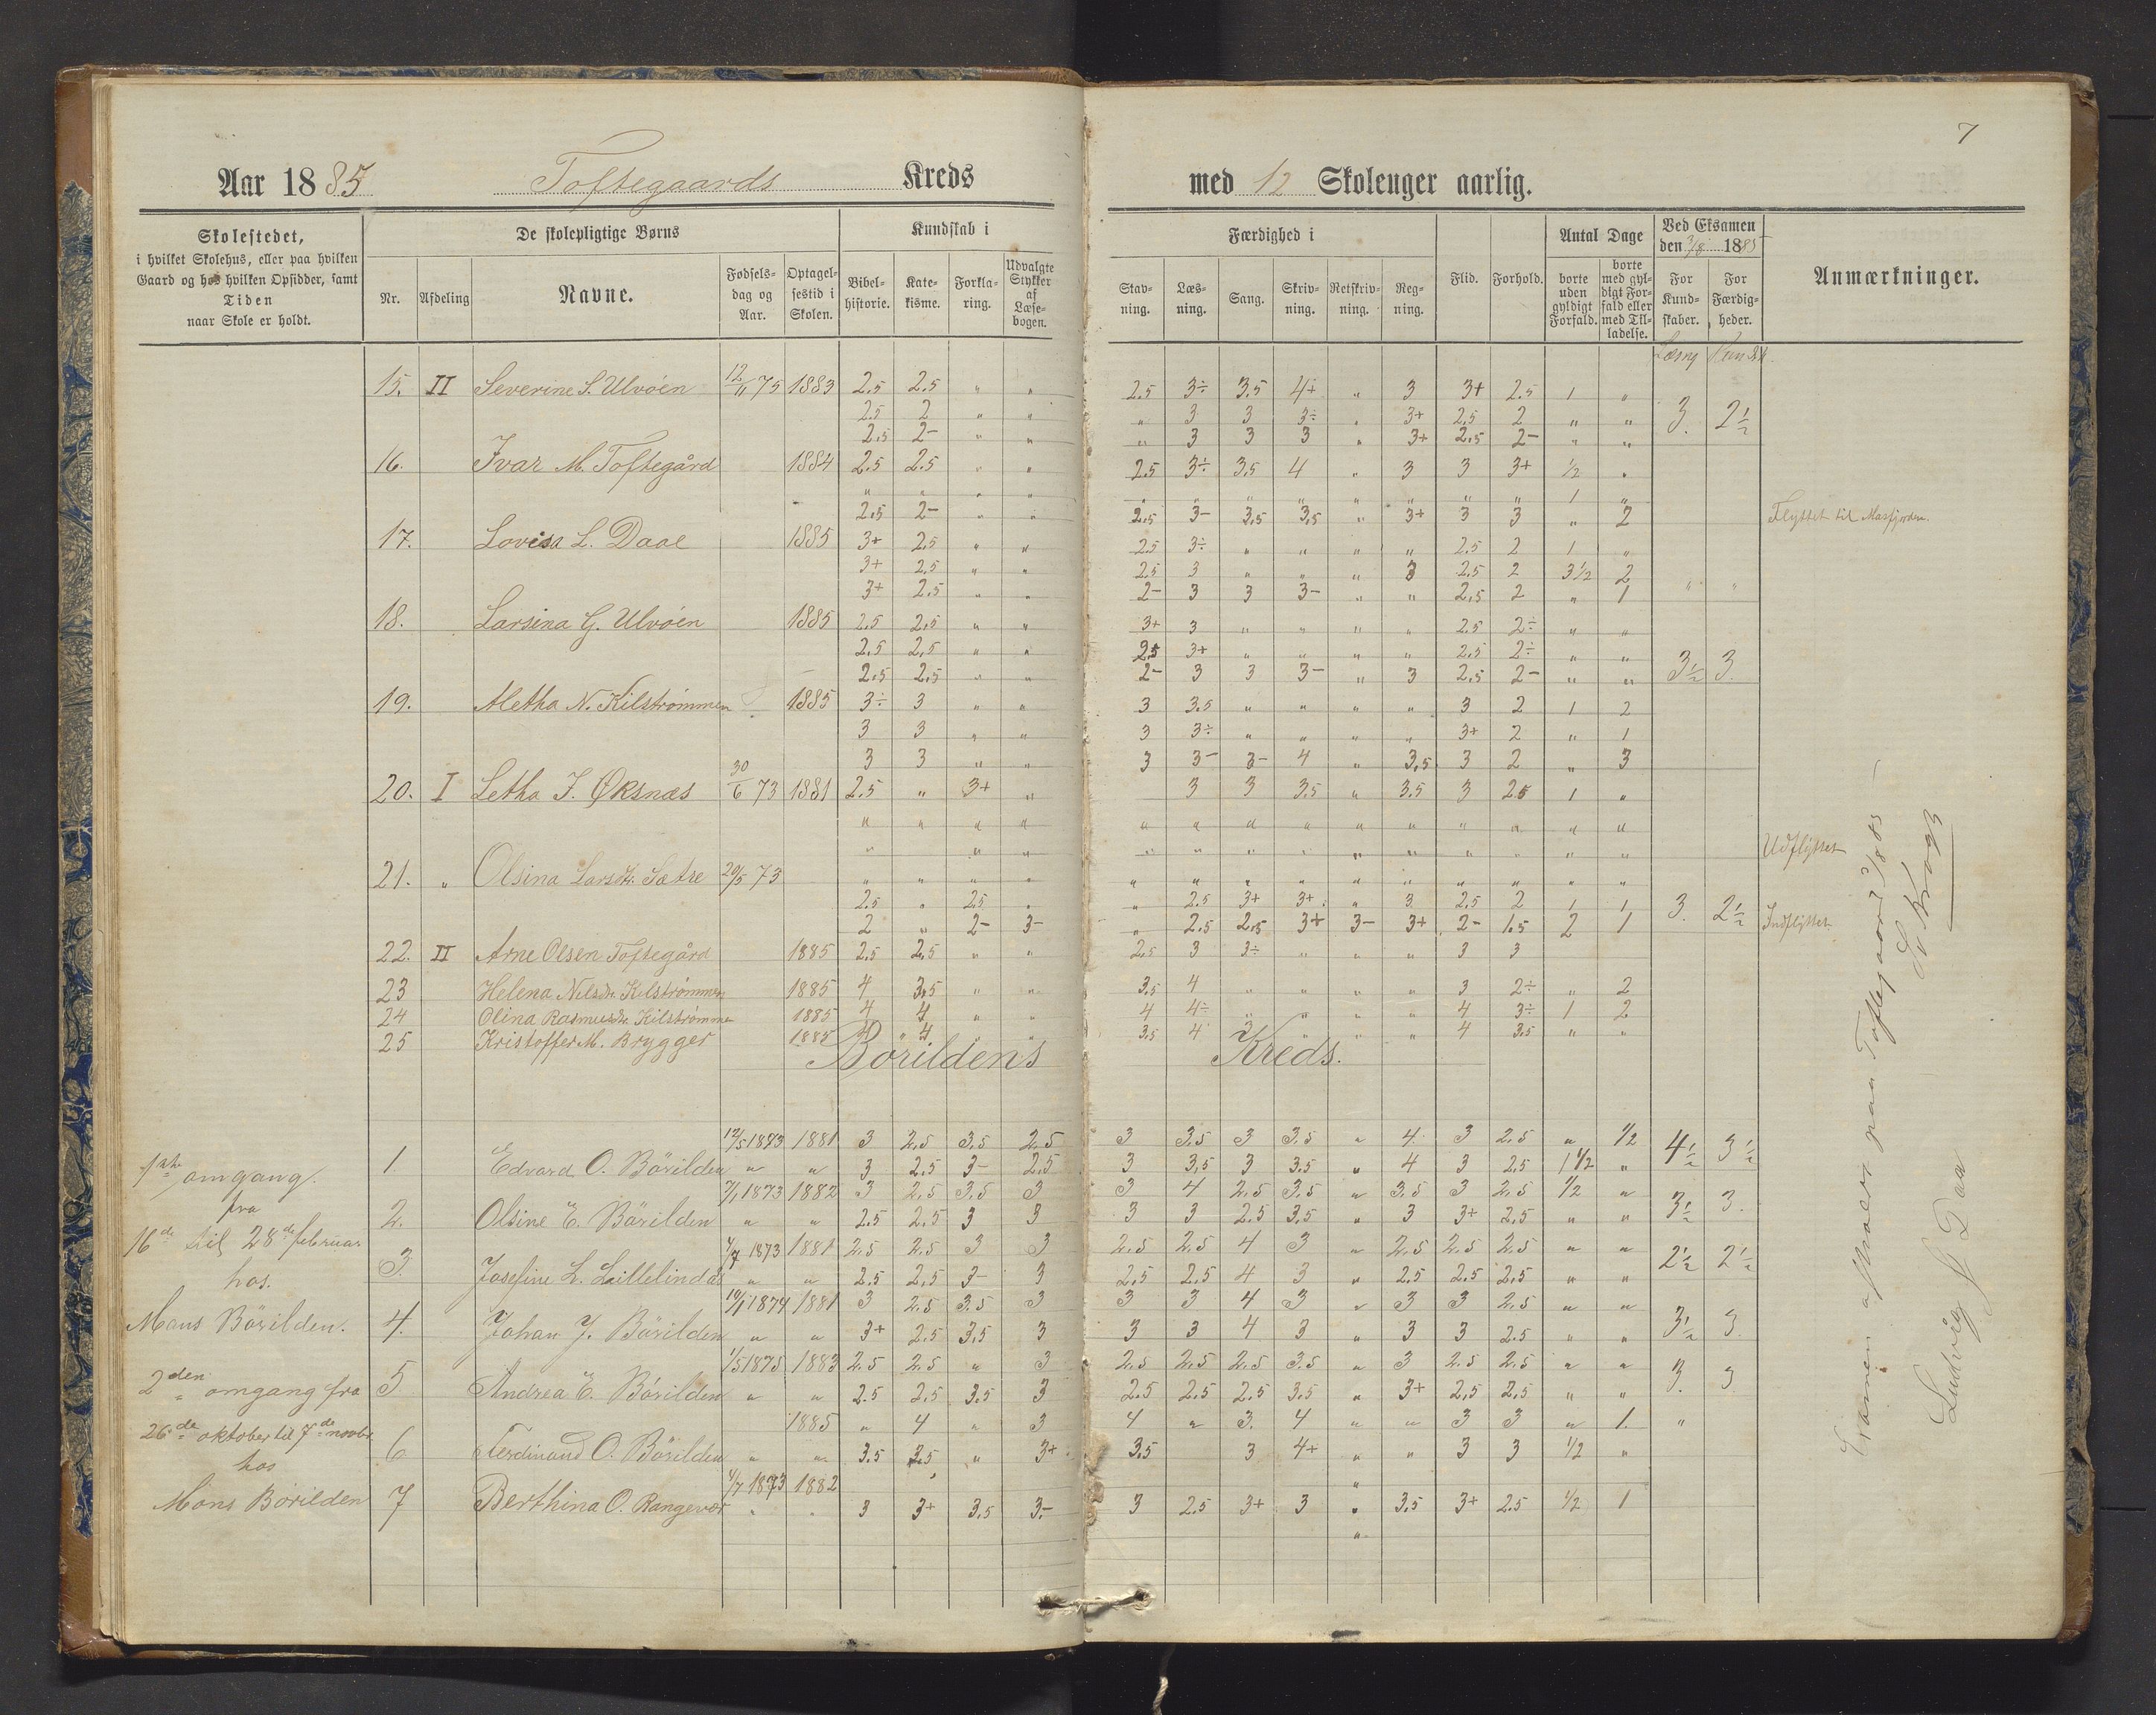 7
Aar 1885 Toftegaards Kreds med 12 Skoleuger aarlig.
Skolestedet,
i hvilket Skolehus, eller paa hvilken
Gaard og hos hvilken Opsidder, samt
Tiden
naar Skole er holdt.
De skolepligtige Børns
Nr. Afdeling Navne. Fødsels-dag og Aar. Optagel-sestid i Skolen.
Kundskab i
Bibel-historie. Kate-kisme. Forkla-ring. Udvalgte Stykker af Læse-bogen.
Færdighed i
Stav-ning. Læs-ning. Sang. Skriv-ning. Retskriv-ning. Reg-ning.
Flid. Forhold.
Antal Dage
borte uden gyldigt Forfald. borte med gyl-digt For-fald eller med Til-ladelse.
Ved Eksamen den 3/8 1885
For Kund-skaber. For Færdig-heder.
Anmærkninger.
15. II Severine S. Ulvöen 12/11 75 1883 2.5 2.5 " " 2.5 3÷ 3.5 4+ " 3 3+ 2.5 1 "
2.5 2 " " " 3 3 3÷ " 3+ 2.5 2 " " 3. 2½
2.5 2- " " " 3 3 3 " 3+ 2.5 2- " "
16. Ivar M. Toftegård 1884 2.5 2.5 " " 2.5 3÷ 3.5 4 " 3 3 3+ ½ "
" " " " " " " " " " " " 1 "
2.5 2- " " 2.5 3- 3.5 3.5 " 3+ 3 3 " 2 Flyttet til Masfjorden.
17. Lovisa L. Daae 1885 3+ 2.5 " " 2.5 3÷ " " " " 2.5 2 1 "
3+ 2.5 " " 2.5 3 " " " 3 2.5 2 3½ 2
3+ 2.5 " " 2- 3 3 3- " " 2.5 2 " 1 " "
18. Larsina G. Ulvöen 1885 2.5 2.5 " " 3+ 3 " " " " 2.5 2÷ " "
2.5 2.5 " " 2.5 3+ " " " " 2.5 2÷ " "
2.5 2.5 " " 2- 3 3 3- " 3 2.5 2- " " 3½ 3.
19. Aletha N. Kilströmmen 1885 3÷ 3 " " 3 3.5 " " " " 3 2 1 2
3 3 " " 3 3÷ " " " " 3+ 2 " 1
3 3 " " 3 3- 3- 4 " 3.5 3 2 " 3
20. I Letha J. Øksnæs 30/6 73 1881 2.5 " 3+ " 3 3 3.5 " 3.5 3 2.5 1 "
" " " " " " " " " " " " " "
" " " " " " " " " " " " " Udflyttet
21. " Olsina Larsdtr. Sætre 20/5 73 " " " " " " " " " " " " " "
2.5 " 2.5 " " 2.5 3+ 3+ " 3 2.5 2 1 1
2 " 2- 3- " 2.5 2.5 3+ 3- 3+ 2- 1.5 2 1 3. 2½ Indflyttet
22. II Arne Olsen Toftegård 1885 2.5 2.5 " " 2.5 3 3÷ " " " 3 3
23 Helena Nilsdtr. Kilströmmen 1885 4 3.5 " " 3.5 4 " " " " 3 2÷ " 2
24 Olina Rasmusdtr. Kilströmmen 1885 4 4 " " 4 4÷ " " " " 4 3÷ 1 2
25 Kristoffer M. Brygger 1885 4 4 " 3.5 4 3 " " " 4 3.5 " "
Börildens Kreds.
12/5 1873 1881 3 2.5 3.5 2.5 3 3.5 3 3.5 " 4 3 2.5 " ½
1. Edvard O. Börilden " " 3 2.5 3- 2.5 3 3.5 3 3.5 " 4 3 2.5 1½ " 4½ 3½
7/1 1873 1882 3 2.5 3.5 3 3 4 2.5 3.5 " 3.5 3 2.5 ½ "
2. Olsine E. Börilden " " 2.5 2.5 3 3 3 3 2.5 3.5 " 3 3+ 2.5 " " 3½ 3.
4/7 1873 1881 2.5 2.5 3 3 2.5 2.5 4 3 " 2.5 2.5 2.5 " "
3. Josefine L. Lillelindås " " 2.5 2.5 3- 3 2.5 2.5 4 3 " 2.5 2.5 2.5 " " 2½ 2½
10/1 1874 1881 3 2.5 3.5 3 3 3 4 3 " 3 3 2.5 " "
4. Johan J. Börilden " " 3+ 2.5 3.5 3 3 3 4 3 " 3 3 2.5 " " 3½ 3.
1/5 1875 1883 2.5 2.5 " 3 2.5 2.5 2.5 3.5 " 3 2.5 2.5 " "
5 Andrea E. Börilden " " 2.5 2.5 3.5 3 2.5 2.5 2.5 3.5 " 3+ 2.5 2.5 " " 3. 3
1885 " 4 " 3 4 " 3. 4 " " 3 3 " 1. "
6 Ferdinand O. Börilden " " 3.5 3.5 " 3+ 3.5 3 4+ " " 3 3 ½ "
4/7 1873 1882 "
7 Berthina O. Rangevær " " 3 3+ 3.5 3- 3 2.5 3+ 3 " 3.5 3+ 2.5 ½ 1
1ste omgang.
fra
16de til 28de februar
hos.
Mons Börilden.
2den omgang fra
26de oktober til 7de novbr
hos
Mons Börilden
Examen afholdt paa Toftegaard 3/8 85
L. Krogh
Ludvig J. Daa